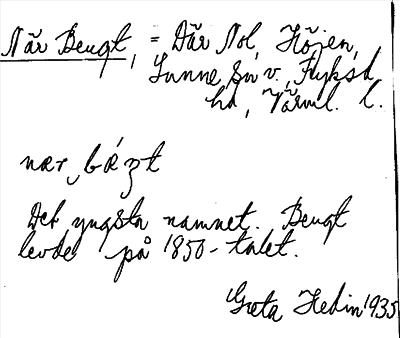 När Bengt, = Där Nol, Höjen,
Sunne sn v., Fryksd
hd, Värml. l.
nær ˬ bǽŋt
Det yngsta namnet. Bengt
levde på 1850-talet.
Greta Hedin 1935